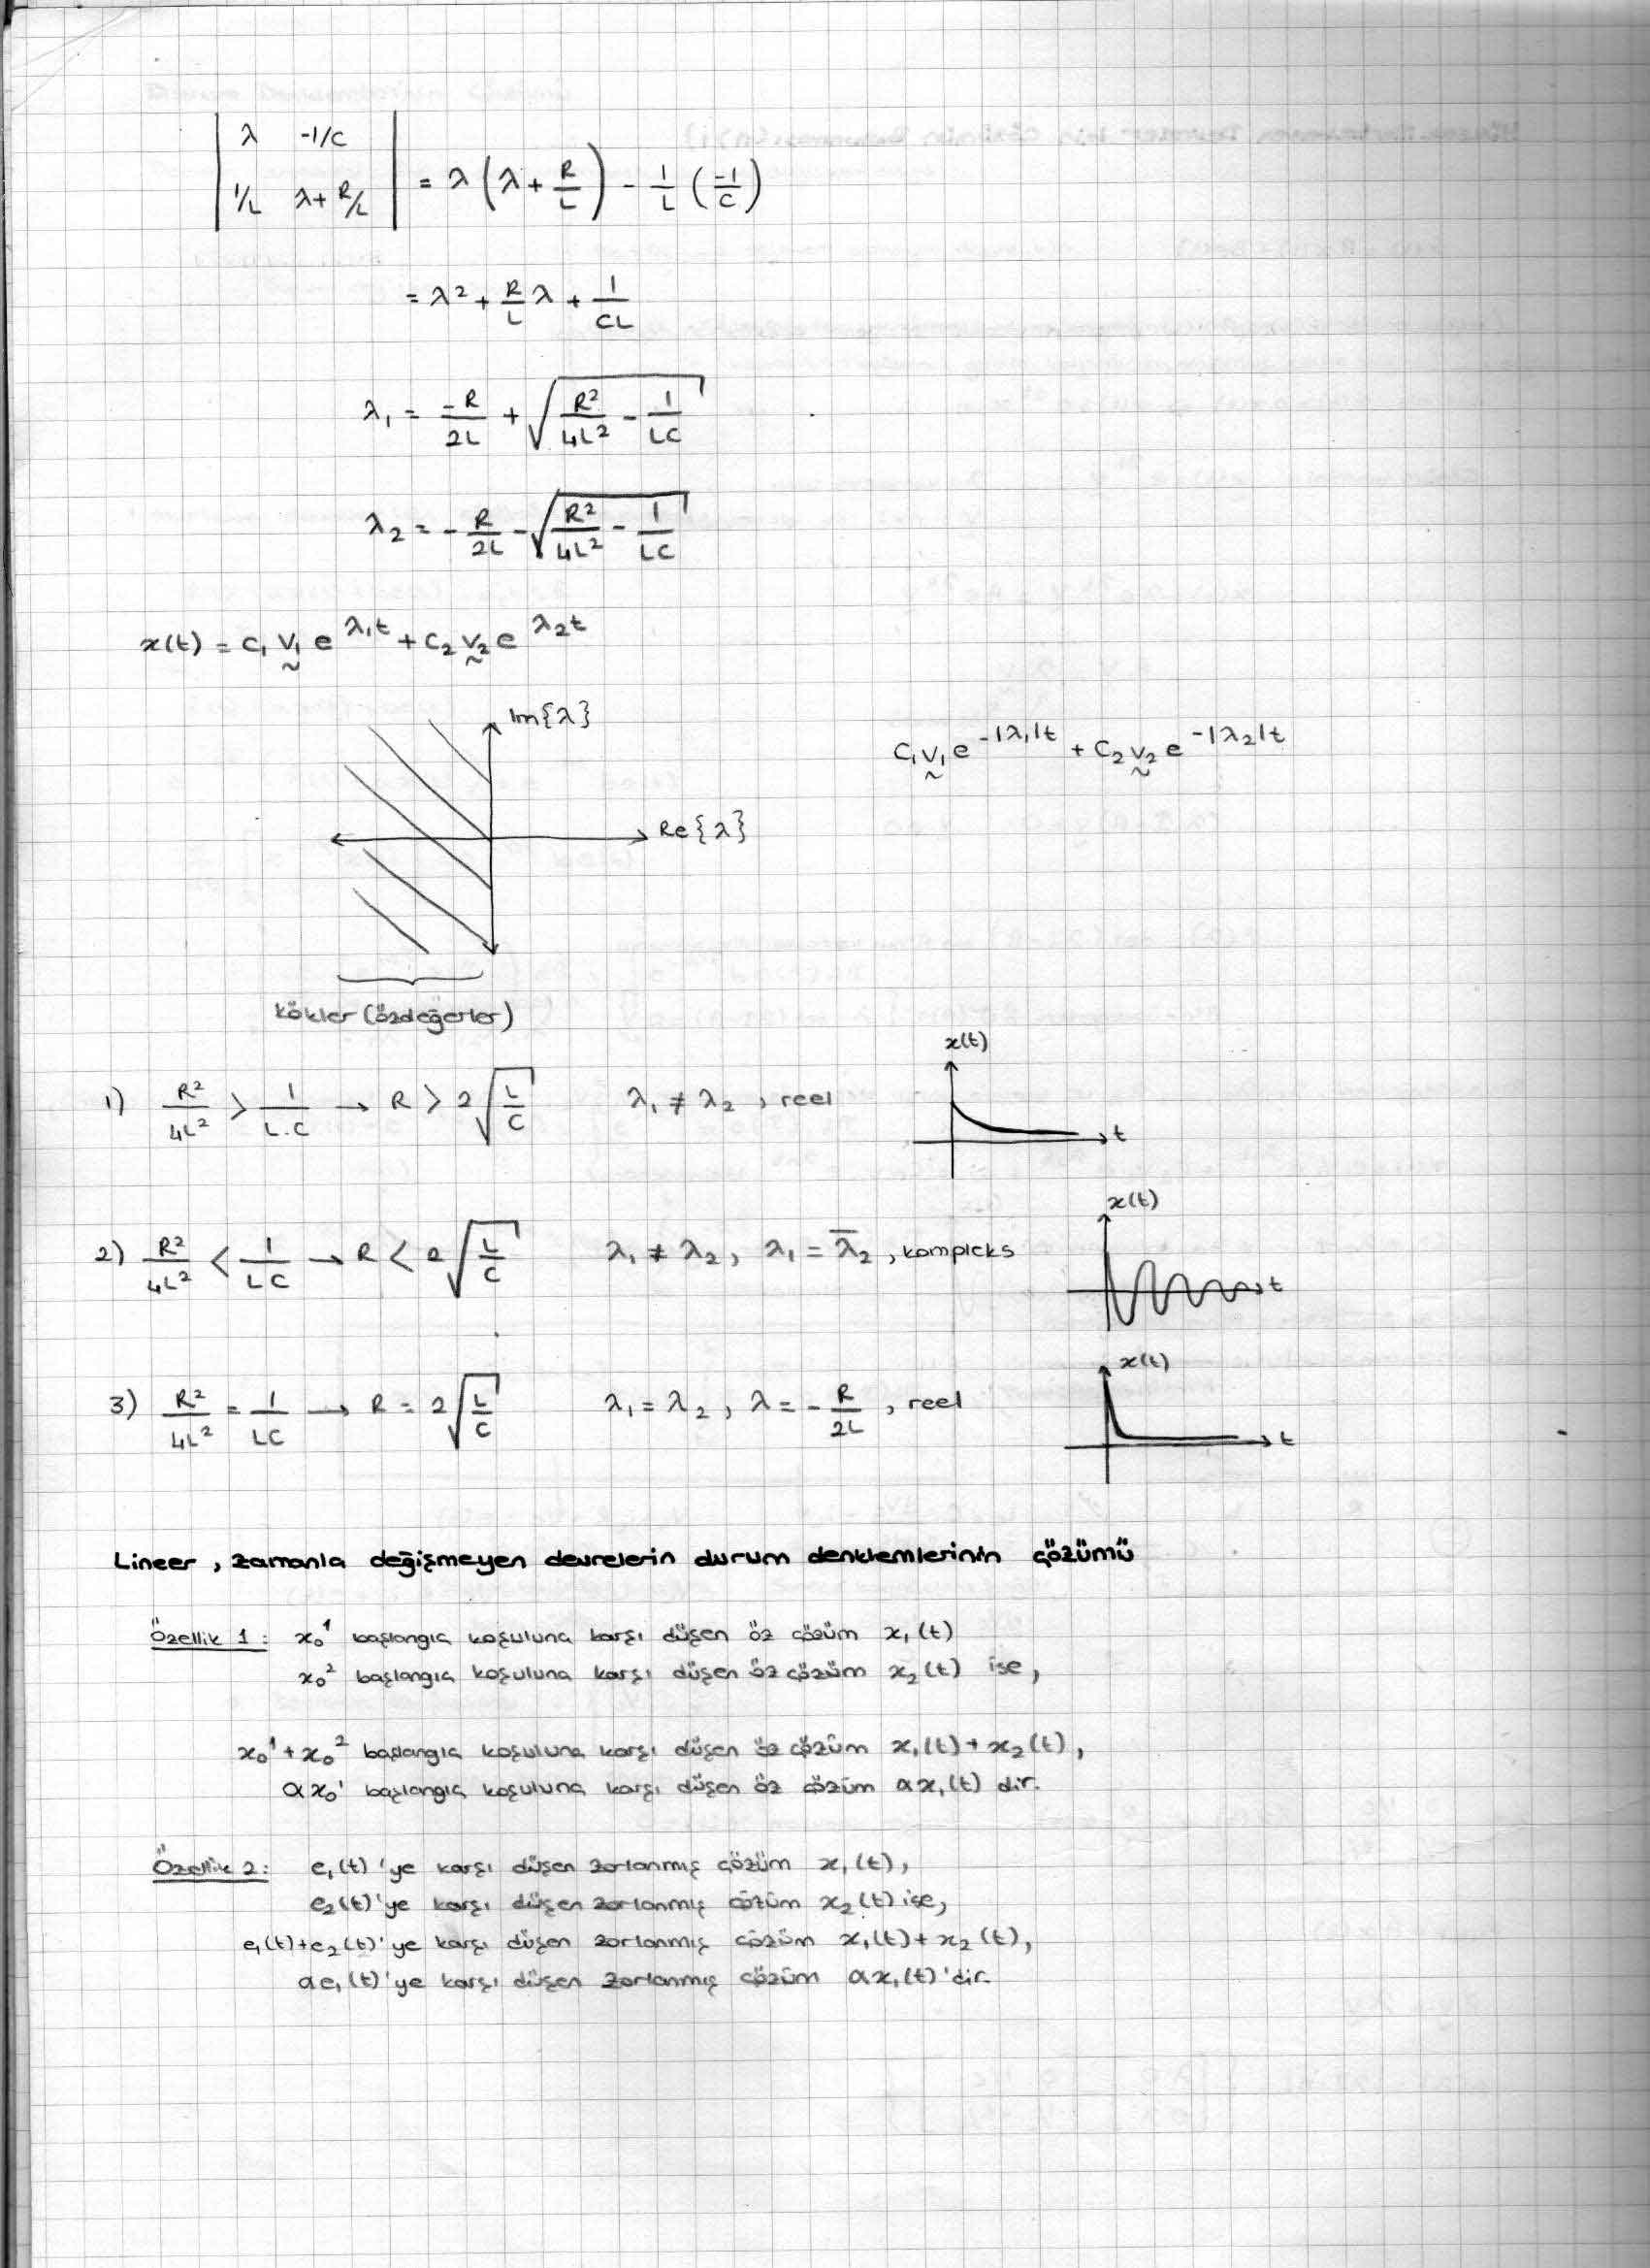 | λ -1/C |
| 1/L λ+R/L | = λ (λ + R/L) - 1/L (-1/C)
= λ² + R/L λ + 1/CL
λ₁ = -R/2L + √(R²/4L² - 1/LC)
λ₂ = -R/2L - √(R²/4L² - 1/LC)
x(t) = c₁ v₁ e^λ₁t + c₂ v₂ e^λ₂t
Im{λ}
c₁ v₁ e^-|λ₁|t + c₂ v₂ e^-|λ₂|t
Re{λ}
Kökler (özdeğerler)
x(t)
1) R²/4L² > 1/L.C → R > 2√(L/C) λ₁ ≠ λ₂, reel
t
x(t)
2) R²/4L² < 1/LC → R < 2√(L/C) λ₁ ≠ λ₂, λ₁ = λ̅₂, kompleks
t
x(t)
3) R²/4L² = 1/LC → R = 2√(L/C) λ₁ = λ₂, λ = -R/2L, reel
t
Lineer, zamanla değişmeyen devrelerin durum denklemlerinin çözümü
Özellik 1: x₀¹ başlangıç koşuluna karşı düşen öz çözüm x₁(t)
x₀² başlangıç koşuluna karşı düşen öz çözüm x₂(t) ise,
x₀¹ + x₀² başlangıç koşuluna karşı düşen öz çözüm x₁(t) + x₂(t),
αx₀¹ başlangıç koşuluna karşı düşen öz çözüm αx₁(t) dir.
Özellik 2: e₁(t)'ye karşı düşen zorlanmış çözüm x₁(t),
e₂(t)'ye karşı düşen zorlanmış çözüm x₂(t) ise,
e₁(t)+e₂(t)'ye karşı düşen zorlanmış çözüm x₁(t) + x₂(t),
αe₁(t)'ye karşı düşen zorlanmış çözüm αx₁(t)'dir.